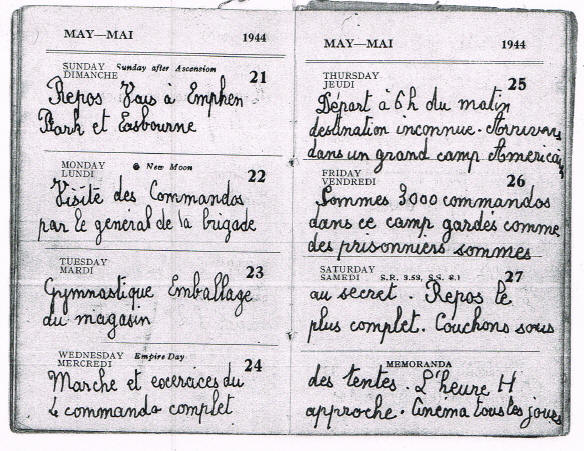 MAY—MAI 1944
SUNDAY Sunday after Ascension 21
DIMANCHE
Repos Vais à Emphen
Park et Easbourne
MONDAY New Moon 22
LUNDI
Visite des Commandos
par le général de la brigade
TUESDAY 23
MARDI
Gymnastique Emballage
du magasin
WEDNESDAY Empire Day 24
MERCREDI
Marche et exercices du
4 commando complet
MAY—MAI 1944
THURSDAY 25
JEUDI
Départ à 6h du matin
destination inconnue. Arrivons
dans un grand camp Américain
FRIDAY 26
VENDREDI
Sommes 3000 commandos
dans ce camp gardés comme
des prisonniers sommes
SATURDAY 27
SAMEDI S.R. 3.53, S.S.
au secret. Repos le
plus complet. Couchons sous
MEMORANDA
des tentes. L'heure H
approche. Cinéma tous les jours